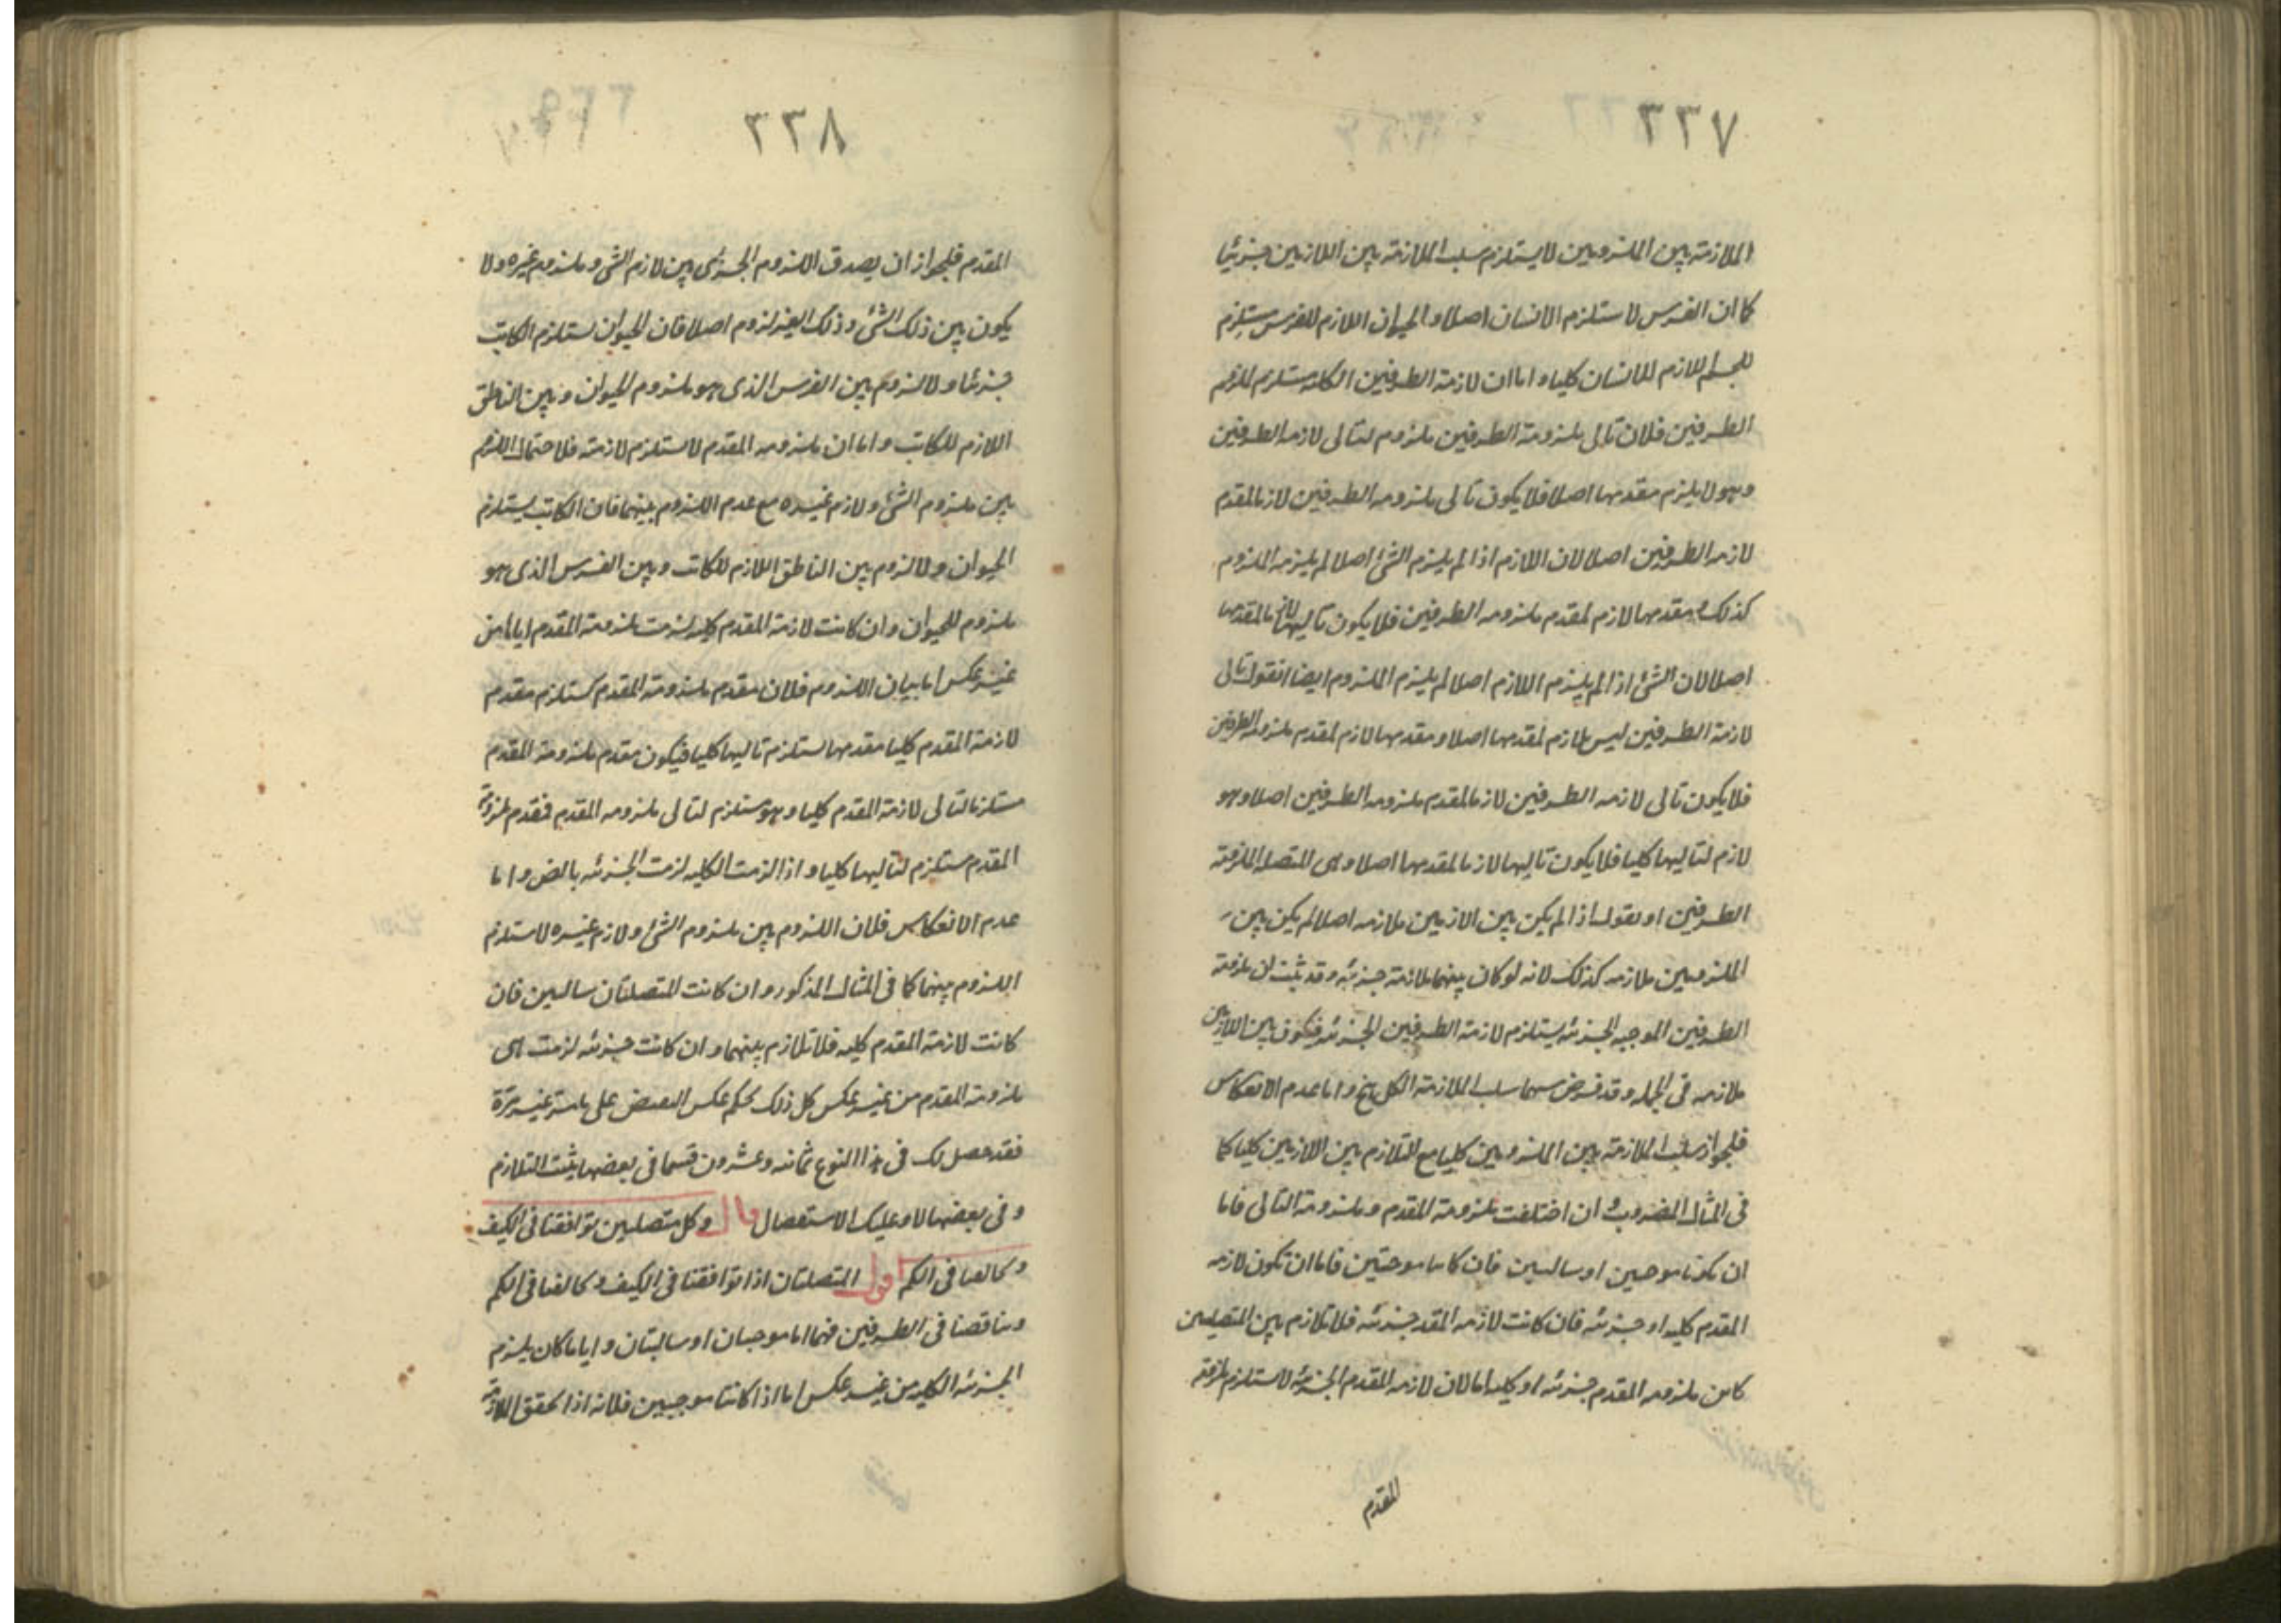 ٢٣٧
الملازمة بين الملزومين لا يستلزم سلب الملازمة بين اللازمين جزئيا
كما ان الفرس لا يستلزم الانسان اصلا و الحيوان اللازم للفرس مستلزم
للجسم اللازم للانسان كليا و اما ان لازمة الطرفين الكلية مستلزم لملزومة
الطرفين فلان تالى ملزومة الطرفين ملزوم لتالى لازمة الطرفين
وهو لا يلزم مقدمها اصلا فلا يكون تالى ملزومه الطرفين لازما لمقدم
لازمه الطرفين اصلا لان اللازم اذا لم يلزم الشئ اصلا لم يلزمه الملزوم
كذلك و مقدمها لازم لمقدم ملزومه الطرفين فلا يكون تاليها لازما لمقدمها
اصلا لان الشئ اذا لم يلزم اللازم اصلا لم يلزم الملزوم ايضا او نقول تالى
لازمة الطرفين ليس بلازم لمقدمها اصلا و مقدمها لازم لمقدم ملزومه الطرفين
فلا يكون تالى لازمه الطرفين لازما لمقدم ملزومه الطرفين اصلا وهو
لازم لتاليها كليا فلا يكون تاليها لازما لمقدمها اصلا وهى المتصله الملزومة
الطرفين او نقول اذا لم يكن بين الازمين ملازمه اصلا لم يكن بين
الملزومين ملازمه كذلك لانه لو كان بينهما ملازمة جزئيه وقد ثبت ان ملزومة
الطرفين الموجبه الجزئيه يستلزم لازمة الطرفين الجزئيه فيكون بين اللازمين
ملازمه فى الجمله و قد فرض بينهما سلب الملازمة الكلى هخ و اما عدم الانعكاس
فلجواز سلب الملازمة بين الملزومين كليا مع التلازم بين اللازمين كليا كما
فى المثال المضروب و ان اختلفت ملزومة المقدم و ملزومة التالى فاما
ان يكونا موجبتين او سالبتين فان كانتا موجبتين فاما ان تكون لازمه
المقدم كليه او جزئيه فان كانت لازمه المقدم جزئيه فلا تلازم بين المتصلتين
كانت ملزومه المقدم جزئيه او كليه اما لان لازمه المقدم الجزئيه لا يستلزم ملزومة
المقدم
٢٣٨
المقدم فلجواز ان يصدق اللزوم الجزئى بين لازم الشى و ملزوم غيره و لا
يكون بين ذلك الشئ و ذلك الغير لزوم اصلا فان الحيوان يستلزم الكاتب
جزئيا و لا لزوم بين الفرس الذى هو ملزوم الحيوان و بين الناطق
اللازم للكاتب و اما ان ملزومه المقدم لا يستلزم لازمته فلاحتمال اللزوم
بين ملزوم الشئ و لازم غيره مع عدم اللزوم بينهما فان الكاتب يستلزم
الحيوان و لا لزوم بين الناطق اللازم للكاتب و بين الفرس الذى هو
ملزوم للحيوان و ان كانت لازمة المقدم كليه لزمت ملزومة المقدم اياها من
غير عكس اما بيان اللزوم فلان مقدم ملزومة المقدم يستلزم مقدم
لازمة المقدم كليا مقدمها يستلزم تاليها كليا فيكون مقدم ملزومة المقدم
مستلزما لتالى لازمة المقدم كليا و هو مستلزم لتالى ملزومه المقدم فمقدم ملزومة
المقدم مستلزم لتاليها كليا و اذا لزمت الكليه لزمت الجزئيه بالض و اما
عدم الانعكاس فلان اللزوم بين ملزوم الشئ و لازم غيره لا يستلزم
اللزوم بينهما كما فى المثال المذكور و ان كانت المتصلتان سالبتين فان
كانت لازمة المقدم كليه فلا تلازم بينهما و ان كانت جزئيه لزمت هى
ملزومة المقدم من غير عكس كل ذلك بحكم عكس النقيض على ما مر غير مرة
فقد حصل لك فى هذا النوع ثمانيه و عشرون قسما فى بعضها يثبت التلازم
و فى بعضها لا و عليك الاستفصال قال و كل متصلتين توافقتا فى الكيف
و تخالفتا فى الكم اقول المتصلتان اذا توافقتا فى الكيف و تخالفتا فى الكم
و تناقضتا فى الطرفين فهما اما موجبتان او سالبتان و اياما كان يلزم
الجزئيه الكليه من غير عكس اما اذا كانتا موجبتين فلانه اذا تحقق الملازمة